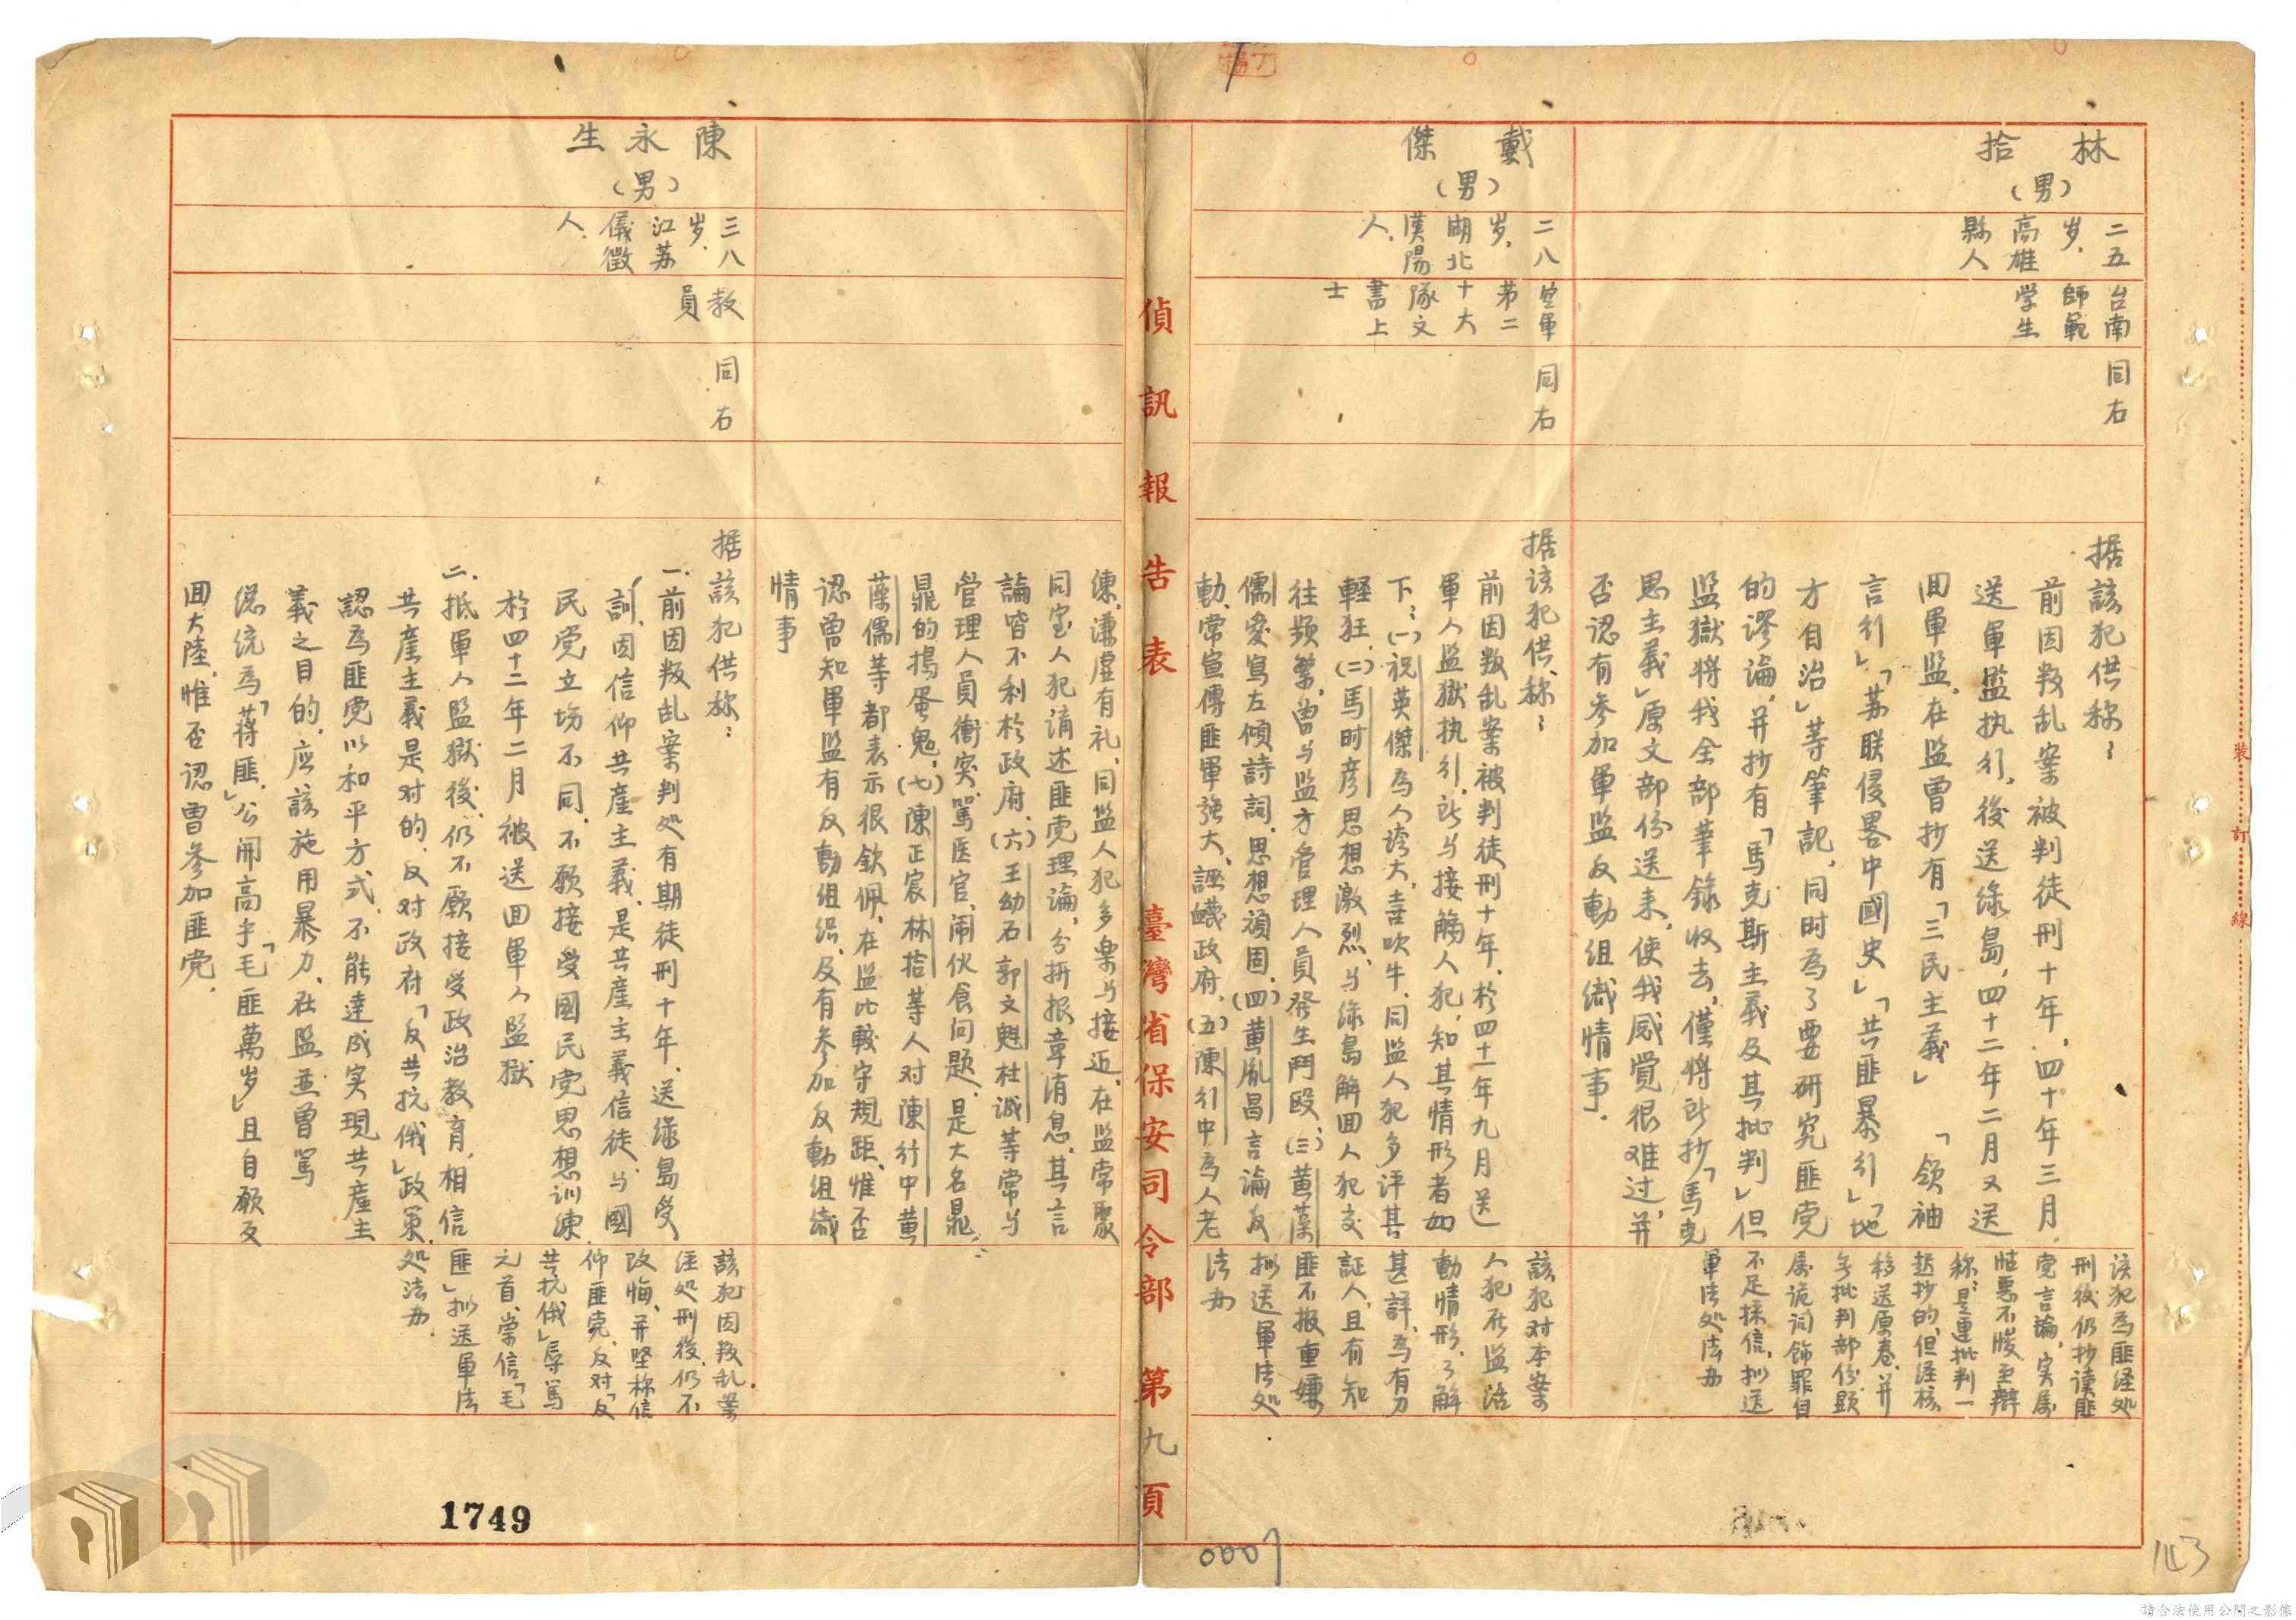 林拾
(男)
二五
岁.
高雄
縣人
台南
師範
学生
同右
据該犯供称：
前因叛乱案被判徒刑十年,四十年三月,
送軍監执行,後送綠島,四十二年二月又送
回軍監,在監曾抄有「三民主義」「領袖
言行」「苏联侵畧中國史」「共匪暴行」「地
方自治」等筆記,同时為了要研究匪党
的謬論,并抄有「馬克斯主義及其批判」但
監獄将我全部筆錄收去,僅将所抄「馬克
思主義」原文部份送来,使我感覚很难过,并
否認有参加軍監反動組織情事.
該犯為匪経处
刑後仍抄读匪
党言論,实属
怙悪不悛,至辯
称:是連批判一
起抄的,但経核
移送原卷,并
無批判部份,顕
属诡词飾罪自
不足採信,拟送
軍法处法办
戴傑
(男)
二八
岁,
湖北
漢陽
人.
空軍
第二
十大
隊文
書上
士
同右
据该犯供称：
前因叛乱案被判徒刑十年,於四十一年九月送
軍人監獄执行,所与接觸人犯,知其情形者如
下:(一)祝英傑為人誇大,喜吹牛,同監人犯多评其
軽狂,(二)馬时彦思想激烈,与綠島解回人犯交
往频繁,曾与監方管理人員発生鬥毆,(三)黄藻
儒愛寫左傾詩詞,思想頑固,(四)黄胤昌言論反
動,常宣傳匪軍強大,誣衊政府,(五)陳行中為人老
該犯对本案
人犯在監活
動情形,了解
甚詳,為有力
証人,且有知
匪不报重嫌
拟送軍法处
法办
偵訊報告表 臺灣省保安司令部 第九頁
练,谦虚有礼,同監人犯多楽与接近,在監常聚
同室人犯講述匪党理論,分拆报章消息,其言
論皆不利於政府,(六)王幼石郭文魁杜诚等常与
管理人員衝突,罵医官,闹伙食问题,是大名鼎
鼎的搗蛋鬼,(七)陳正宸林拾等人对陳行中黄
藻儒等都表示很欽佩,在監比較守規距,惟否
認曾知軍監有反動組織,及有参加反動組織
情事
陳永生
(男)
三八
岁.
江苏
儀徵
人.
教
員
同右
据該犯供称：
一.前因叛乱案判处有期徒刑十年,送綠島受
訓,因信仰共產主義,是共產主義信徒,与國
民党立场不同,不願接受國民党思想训练,
於四十二年二月被送回軍人監獄
二.抵軍人監獄後,仍不願接受政治教育,相信
共產主義是对的,反对政府「反共抗俄」政策,
認為匪党以和平方式,不能達成实現共產主
義之目的,应該施用暴力,在監並曾罵
總統為「蒋匪」公開高乎「毛匪萬岁」且自願反
回大陸,惟否認曾参加匪党.
該犯因叛乱案
経处刑後,仍不
改悔,并坚称信
仰匪党,反对「反
共抗俄」辱罵
元首,崇信「毛
匪」拟送軍法
处法办.
1749
0007
143
裝 訂 線
請合法使用公開之影像